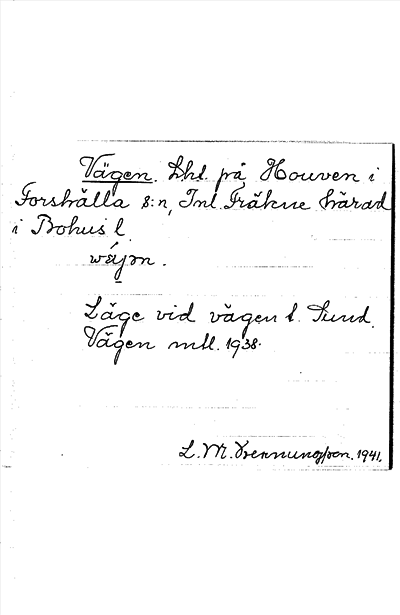 Vägen. Lht. på Houven i
Forshälla s:n, Inl. Fräkne härad
i Bohus l.
Läge vid vägen t. Sund.
Vägen mtl. 1938.
1941.